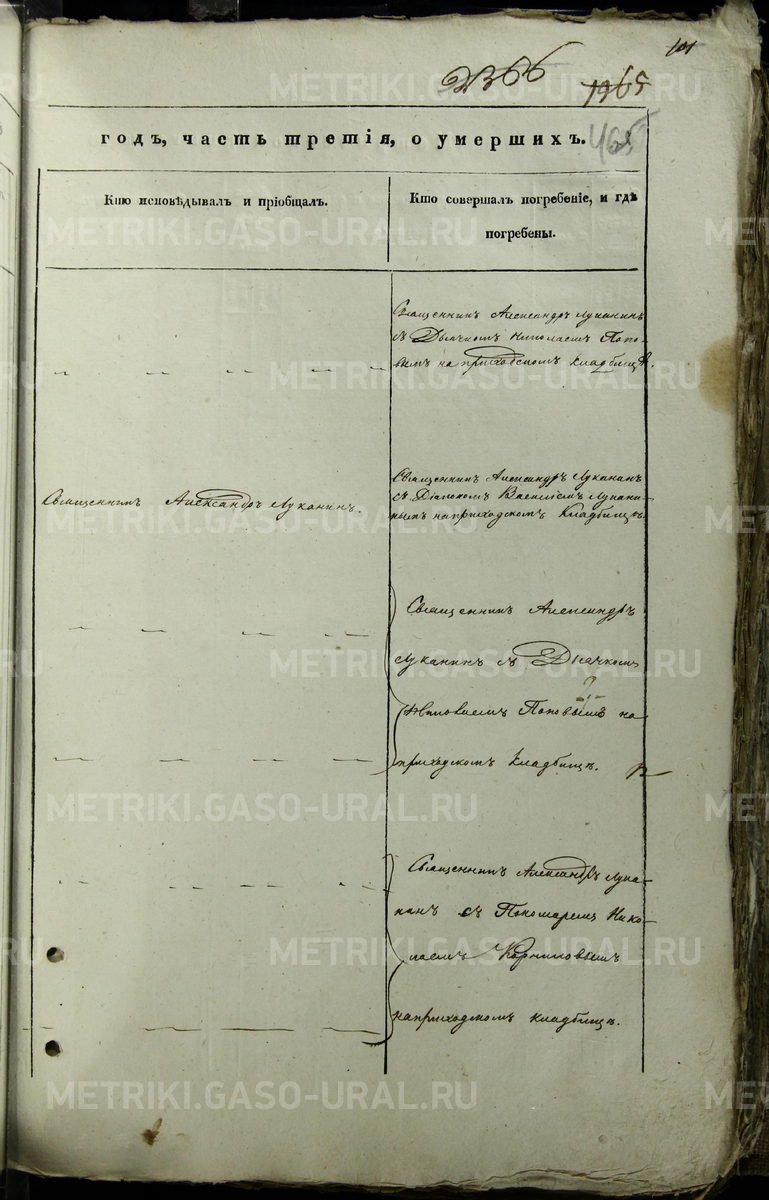 101
2366
1365
465
годъ, часть третія, о умершихъ.
Кто исповѣдывалъ и пріобщалъ.
Кто совершалъ погребеніе, и гдѣ
погребены.
Священникъ Александръ Луканинъ
съ Дьячкомъ Николаемъ Попо-
вымъ на приходскомъ кладбищѣ.
Священникъ Александръ Луканинъ.
Священникъ Александръ Луканинъ
съ Діакономъ Василіемъ Лукани-
нымъ на приходскомъ Кладбищѣ.
Священникъ Александръ
Луканинъ съ Дьячкомъ
Поповымъ на
приходскомъ кладбищѣ.
Священникъ Александръ Лука-
нинъ съ Пономаремъ Нико-
лаемъ Корниловымъ
на приходскомъ кладбищѣ.
METRIKI.GASO-URAL.RU